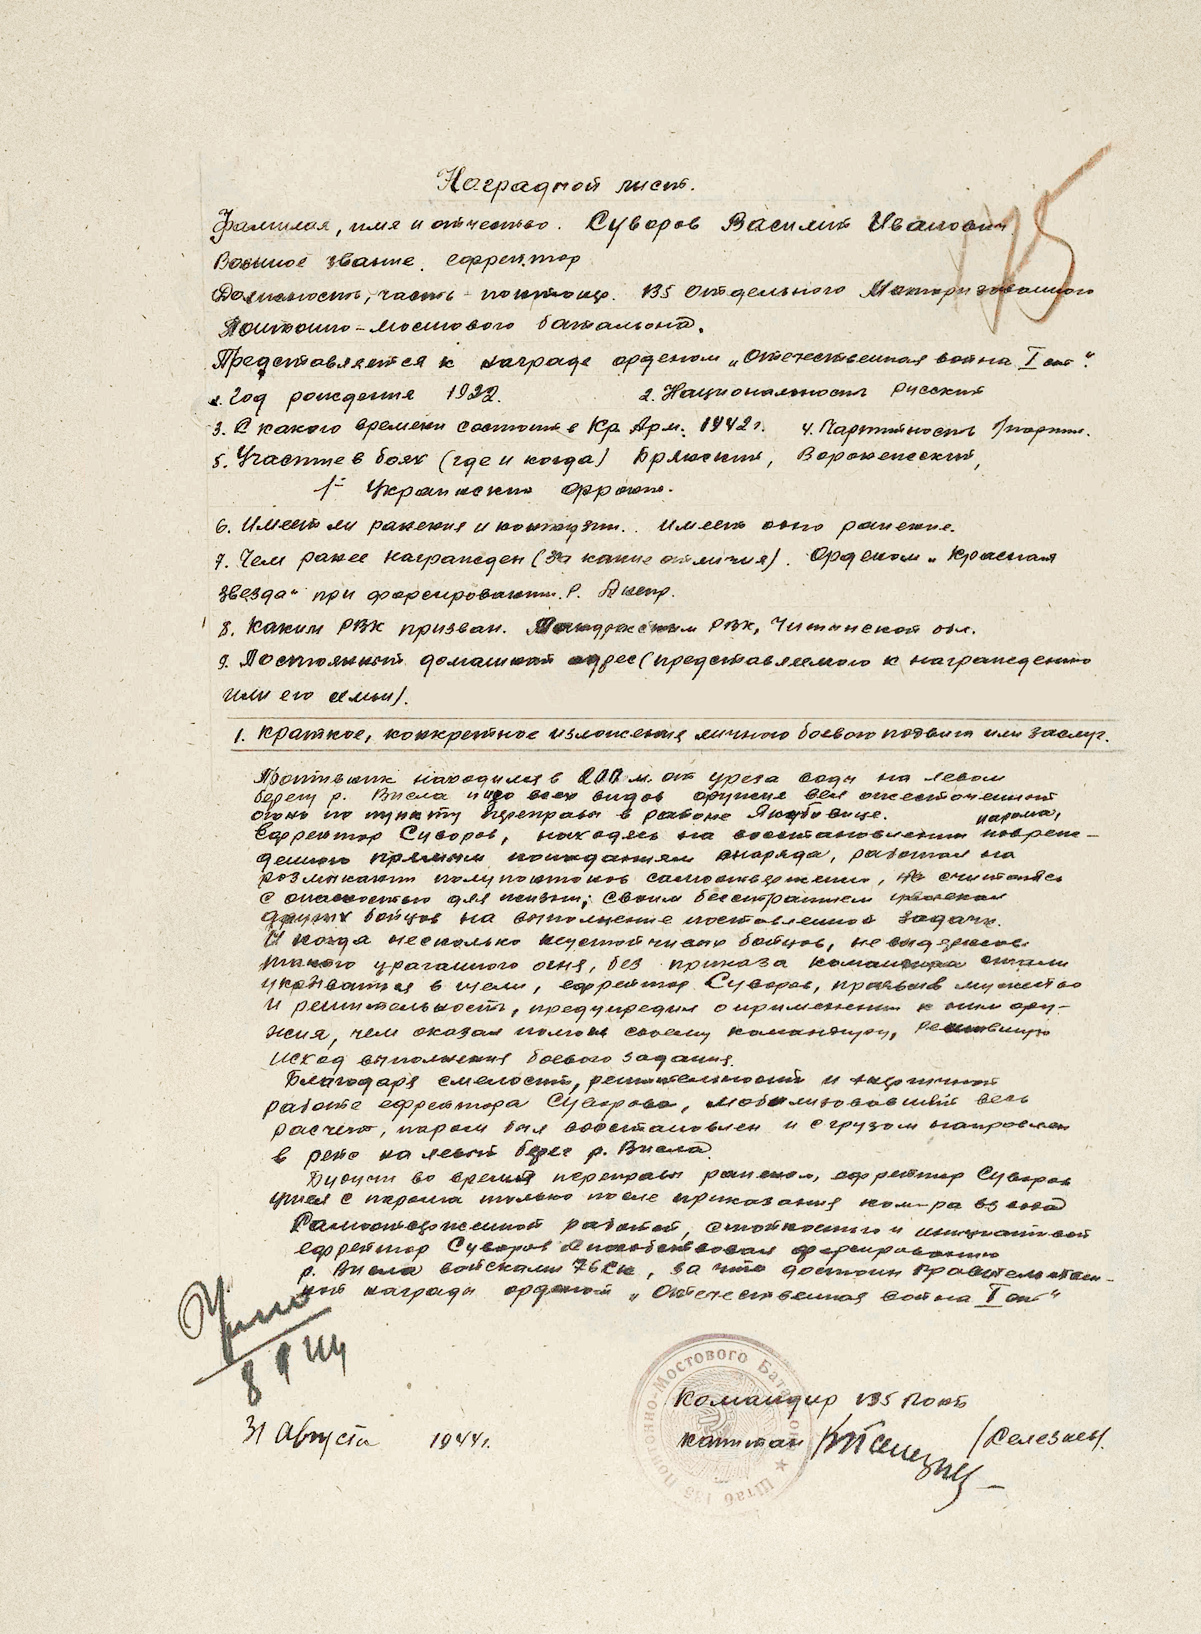 Наградной лист.
Фамилия, имя и отчество. Суворов Василий Иванович.
Военное звание. ефрейтор
Должность, часть - понтонер. 135 Отдельного Моторизованного
Понтонно-мостового батальона.
Представляется к награде орденом „Отечественная война I ст“.
1. Год рождения 1922. 2. Национальность русский
3. С какого времени состоит в Кр. Арм. 1942 г. 4. Партийность
5. Участие в боях (где и когда) Брянский, Воронежский,
1й Украинский фронт.
6. Имеет ли ранения и контузии. имеет одно ранение.
7. Чем ранее награжден (за какие отличия). Орденом „Красная
звезда“ при форсировании. р. Днепр.
8. Каким РВК призван. РВК, Читинской обл.
9. Постоянный домашний адрес (представляемого к награждению
или его семьи).
1. Краткое, конкретное изложение личного боевого подвига или заслуг.
Противник находился в 200 м. от уреза воды на левом
берегу р. Висла и изо всех видов оружия вел ожесточенный
огонь по пункту переправы в районе Якубовице.
парома,
Ефрейтор Суворов, находясь на восстановлении повреж-
денного прямым попаданием снаряда, работал на
размыкании полупонтонов самоотверженно, не считаясь
с опасностью для жизни; своим бесстрашием увлекал
других бойцов на выполнение поставленной задачи.
И когда несколько неустойчивых бойцов, не выдержав
такого ураганного огня, без приказа командира стали
укрываться в щели, ефрейтор Суворов, проявив мужество
и решительность, предупредил о применении к ним ору-
жия, чем оказал помощь своему командиру, решившую
исход выполнения боевого задания.
Благодаря смелости, решительности и энергичной
работе ефрейтора Суворова, мобилизовавший весь
расчет, паром был восстановлен и с грузом направлен
в рейс на левый берег р. Висла.
Будучи во время переправы ранен, ефрейтор Суворов
ушел с парома только после приказания ком-ра взвода
Самоотверженной работой, стойкостью и инициативой
ефрейтор Суворов способствовал форсированию
р. Висла войсками 76 ск, за что достоин Правительствен-
ной награды орденом „Отечественная война I ст“
31 Августа 1944 г.
Командир 135 Помб
капитан /Селезнев/.
Понтонно-Мостового Батальона ★ Штаб 135